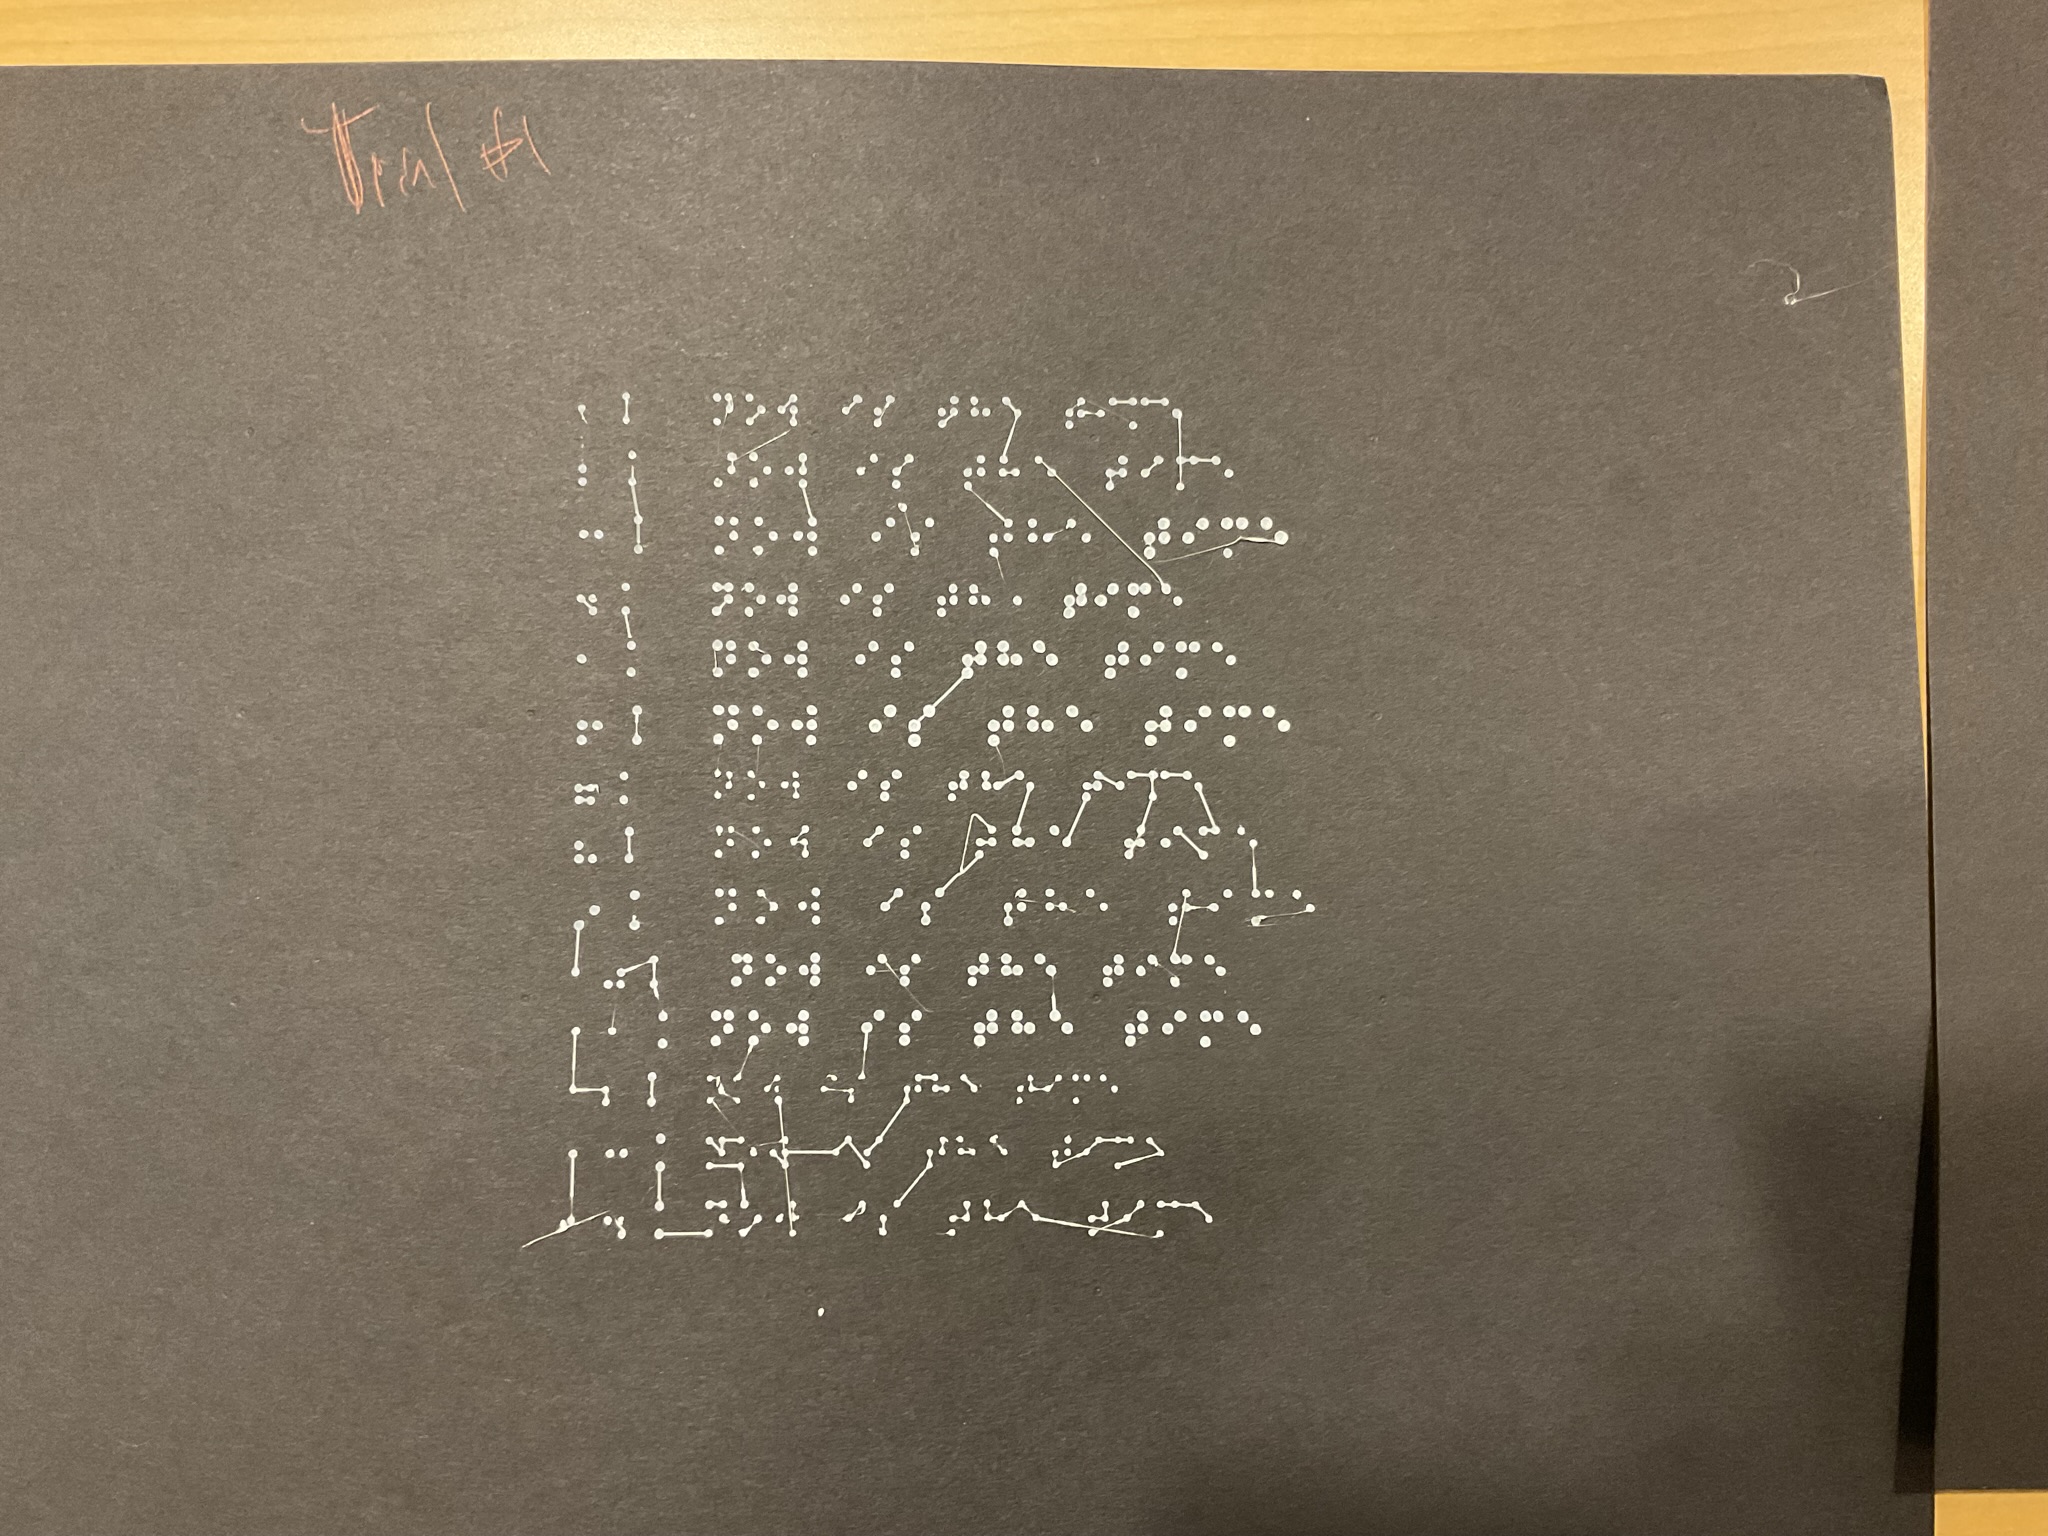 Trial #1
⠝⠕⠺ ⠊⠎ ⠞⠓⠑ ⠞⠊⠍⠑
⠝⠕⠺ ⠊⠎ ⠞⠓⠑ ⠞⠊⠍⠑
⠝⠕⠺ ⠊⠎ ⠞⠓⠑ ⠞⠊⠍⠑
⠝⠕⠺ ⠊⠎ ⠞⠓⠑ ⠞⠊⠍⠑
⠝⠕⠺ ⠊⠎ ⠞⠓⠑ ⠞⠊⠍⠑
⠝⠕⠺ ⠊⠎ ⠞⠓⠑ ⠞⠊⠍⠑
⠝⠕⠺ ⠊⠎ ⠞⠓⠑ ⠞⠊⠍⠑
⠝⠕⠺ ⠊⠎ ⠞⠓⠑ ⠞⠊⠍⠑
⠝⠕⠺ ⠊⠎ ⠞⠓⠑ ⠞⠊⠍⠑
⠝⠕⠺ ⠊⠎ ⠞⠓⠑ ⠞⠊⠍⠑
⠝⠕⠺ ⠊⠎ ⠞⠓⠑ ⠞⠊⠍⠑
⠝⠕⠺ ⠊⠎ ⠞⠓⠑ ⠞⠊⠍⠑
⠝⠕⠺ ⠊⠎ ⠞⠓⠑ ⠞⠊⠍⠑
⠝⠕⠺ ⠊⠎ ⠞⠓⠑ ⠞⠊⠍⠑